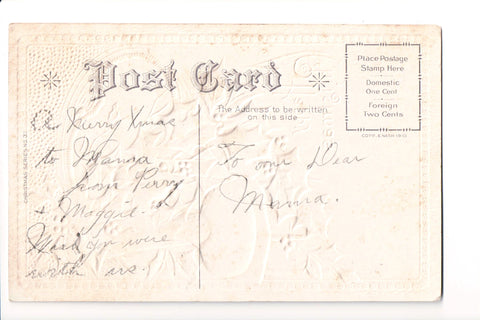 Post Card
Place Postage
Stamp Here
Domestic
One Cent
Foreign
Two Cents
COPR. E. NASH 1910
The Address to be written
on this side
CHRISTMAS SERIES NO. 2
A Merry Xmas
to Mamma
from Perry
& Maggie.
Wish you were
with us.
To our Dear
Mamma.